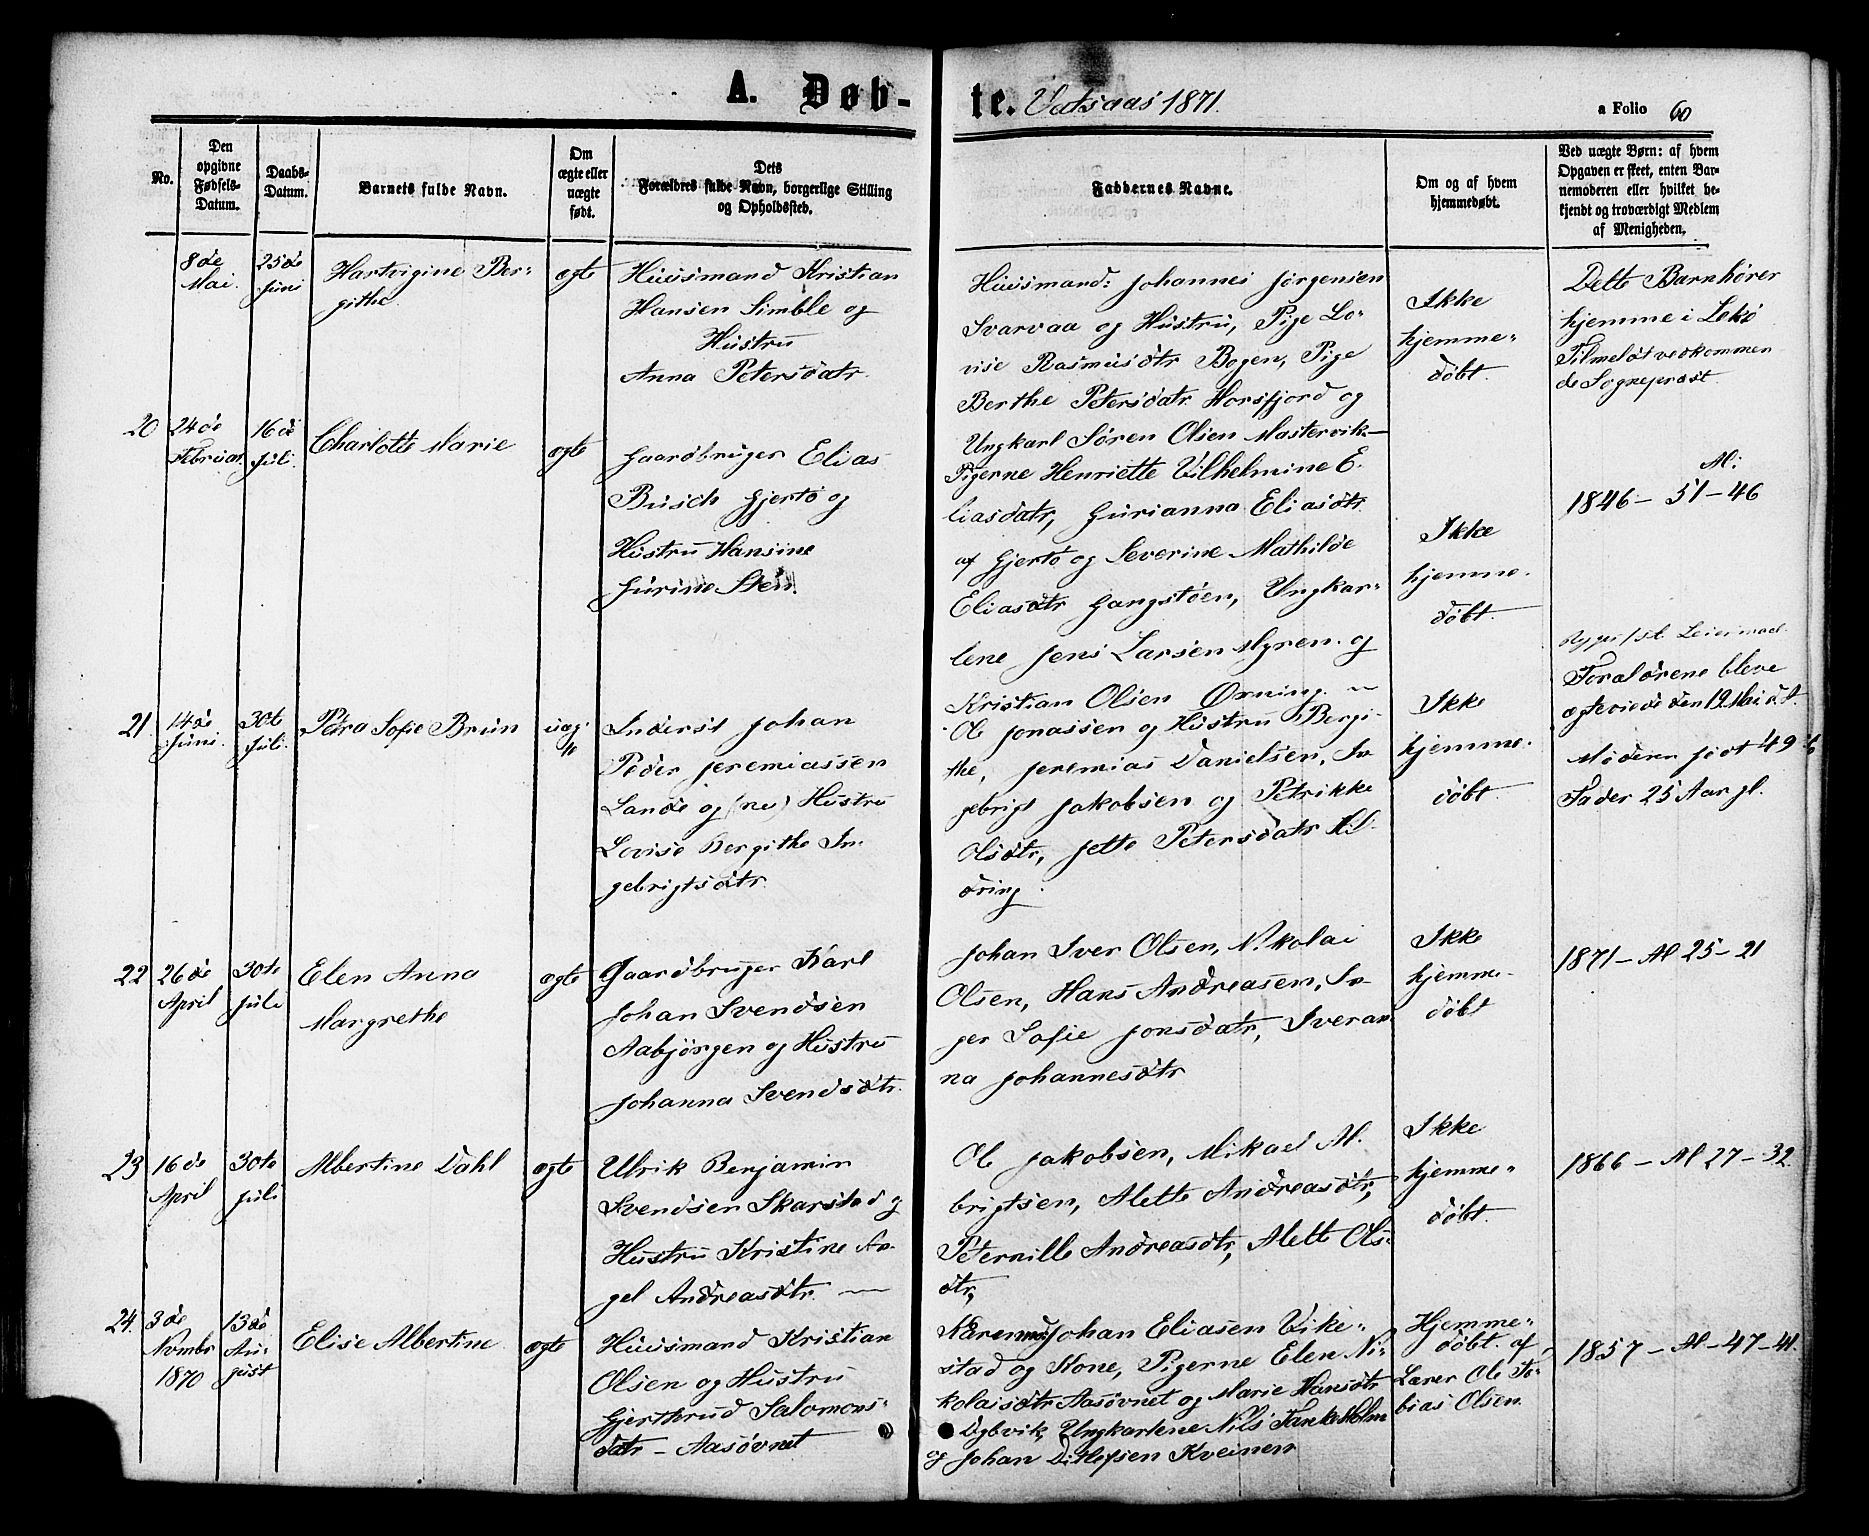 A. Døb-
te. Vatsaas 1871.
a Folio 60
No.
Den
opgivne
Fødsels-
Datum.
Daabs-
Datum.
Barnets fulde Navn.
Om
ægte eller
uægte
født.
Dets
Forældres fulde Navn, borgerlige Stilling
og Opholdssted.
Faddernes Navne.
Om og af hvem
hjemmedøbt.
Ved uægte Børn: af hvem
Opgaven er skeet, enten Bar-
nemoderen eller hvilket be-
kjendt og troværdigt Medlem
af Menigheden.
8de
Mai.
25de
Juni
Hartvigine Ber-
githe
ægte
Huusmand Kristian
Hansen Simble og
Hustru
Anna Petersdatr.
Huusmand: Johannes Jørgensen
Svarvaa og Hustru, Pige Lo-
vise Rasmusdtr Bogen, Pige
Berthe Petersdatr Horsfjord og
Ungkarl Søren Olsen Mastervik.—
Ikke
hjemme-
døbt.
Dette Barn hører
hjemme i Lekø
Tilmeldt vedkommen
de Sogneprest.
20
24de
Februar
16de
Juli
Charlotte Marie
ægte
Gaardbruger Elias
Busch Gjertø og
Hustru Hansine
Jurine Sten.
Pigerne Henriette Vilhelmine E-
liasdatr, Gurianna Eliasdtr
af Gjertø og Severine Mathilde
Eliasdtr Gangstøen, Ungkar-
lene Jens Larsen Myren og
Kristian Olsen Øxning. —
Ikke
hjemme-
døbt.
Al:
1846 — 51 — 46
21.
14de
Juni
30te
Juli
Petra Sofie Bruun
uæg
Inderst Johan
Peder Jeremiassen
Lande og (nu) Hustru
Lovise Bergithe In-
gebrigtsdtr.
Ole Jonassen og Hustru Bergi-
the, Jeremias Danielsen, In-
gebrigt Jakobsen og Petrikke
Olsdtr, Jette Petersdatr Hil-
dring.
Ikke
hjemme-
døbt.
Leiermaal.
Forældrene bleve
ægteviede den 19 Mai d. A.
Moderen født 49
Fader 25 Aar gl.
22
26de
April
30te
Juli
Elen Anna
Margrethe
ægte
Gaardbruger Karl
Johan Svendsen
Aabjørgen og Hustru
Johanna Svendsdtr.
Johan Iver Olsen, Nikolai
Olsen, Hans Andreasen, In-
ger Sofie Jonsdatr, Iveran-
na Johannesdtr
Ikke
hjemme-
døbt
1871 — Al 25 — 21
23
16de
April
30te
Juli
Albertine Dahl
ægte
Ulrik Benjamin
Svendsen Skarstad og
Hustru Kristine An-
gel Andreasdtr. —
Ole Jakobsen, Mikael Al-
brigtsen, Alette Andreasdtr,
Peternille Andreasdtr, Alette Ols-
dtr,
Ikke
hjemme-
døbt.
1866 — Al 27 — 32.
24.
3de
Novmbr
1870
13de
Au-
gust
Elise Albertine
ægte
Huusmand Kristian
Olsen og Hustru
Gjerthrud Salomons-
datr — Aasøvnet
Johan Eliasen Vike-
stad og Kone, Pigerne Elen Ni-
kolaisdtr Aasøvnet og Marie Hansdtr
Dybvik, Ungkarlene Nils Tanke Holm
og Johan Ditlefsen Kveinen
Hjemme-
døbt af
Lærer Ole To-
bias Olsen
1857 — Al — 47 — 41.